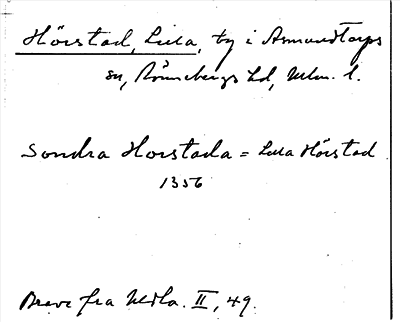 Hörstad, Lilla, by i Asmundtorps
sn, Rönnebergs hd, Mlm. l.
Sondra Horstada = Lilla Hörstad
1356
Breve fra Mdla. II, 49.